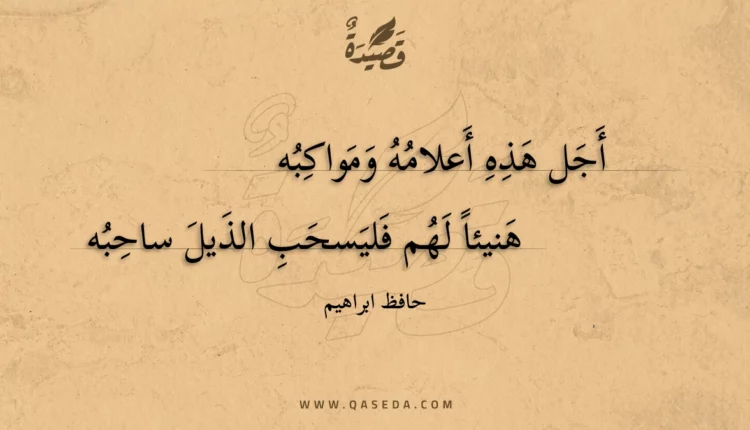 قَصِيْدَةٌ
أَجَل هَذِهِ أَعلامُهُ وَمَواكِبُه
هَنيئاً لَهُم فَليَسحَبِ الذَيلَ ساحِبُه
حافظ ابراهيم
WWW.QASEDA.COM